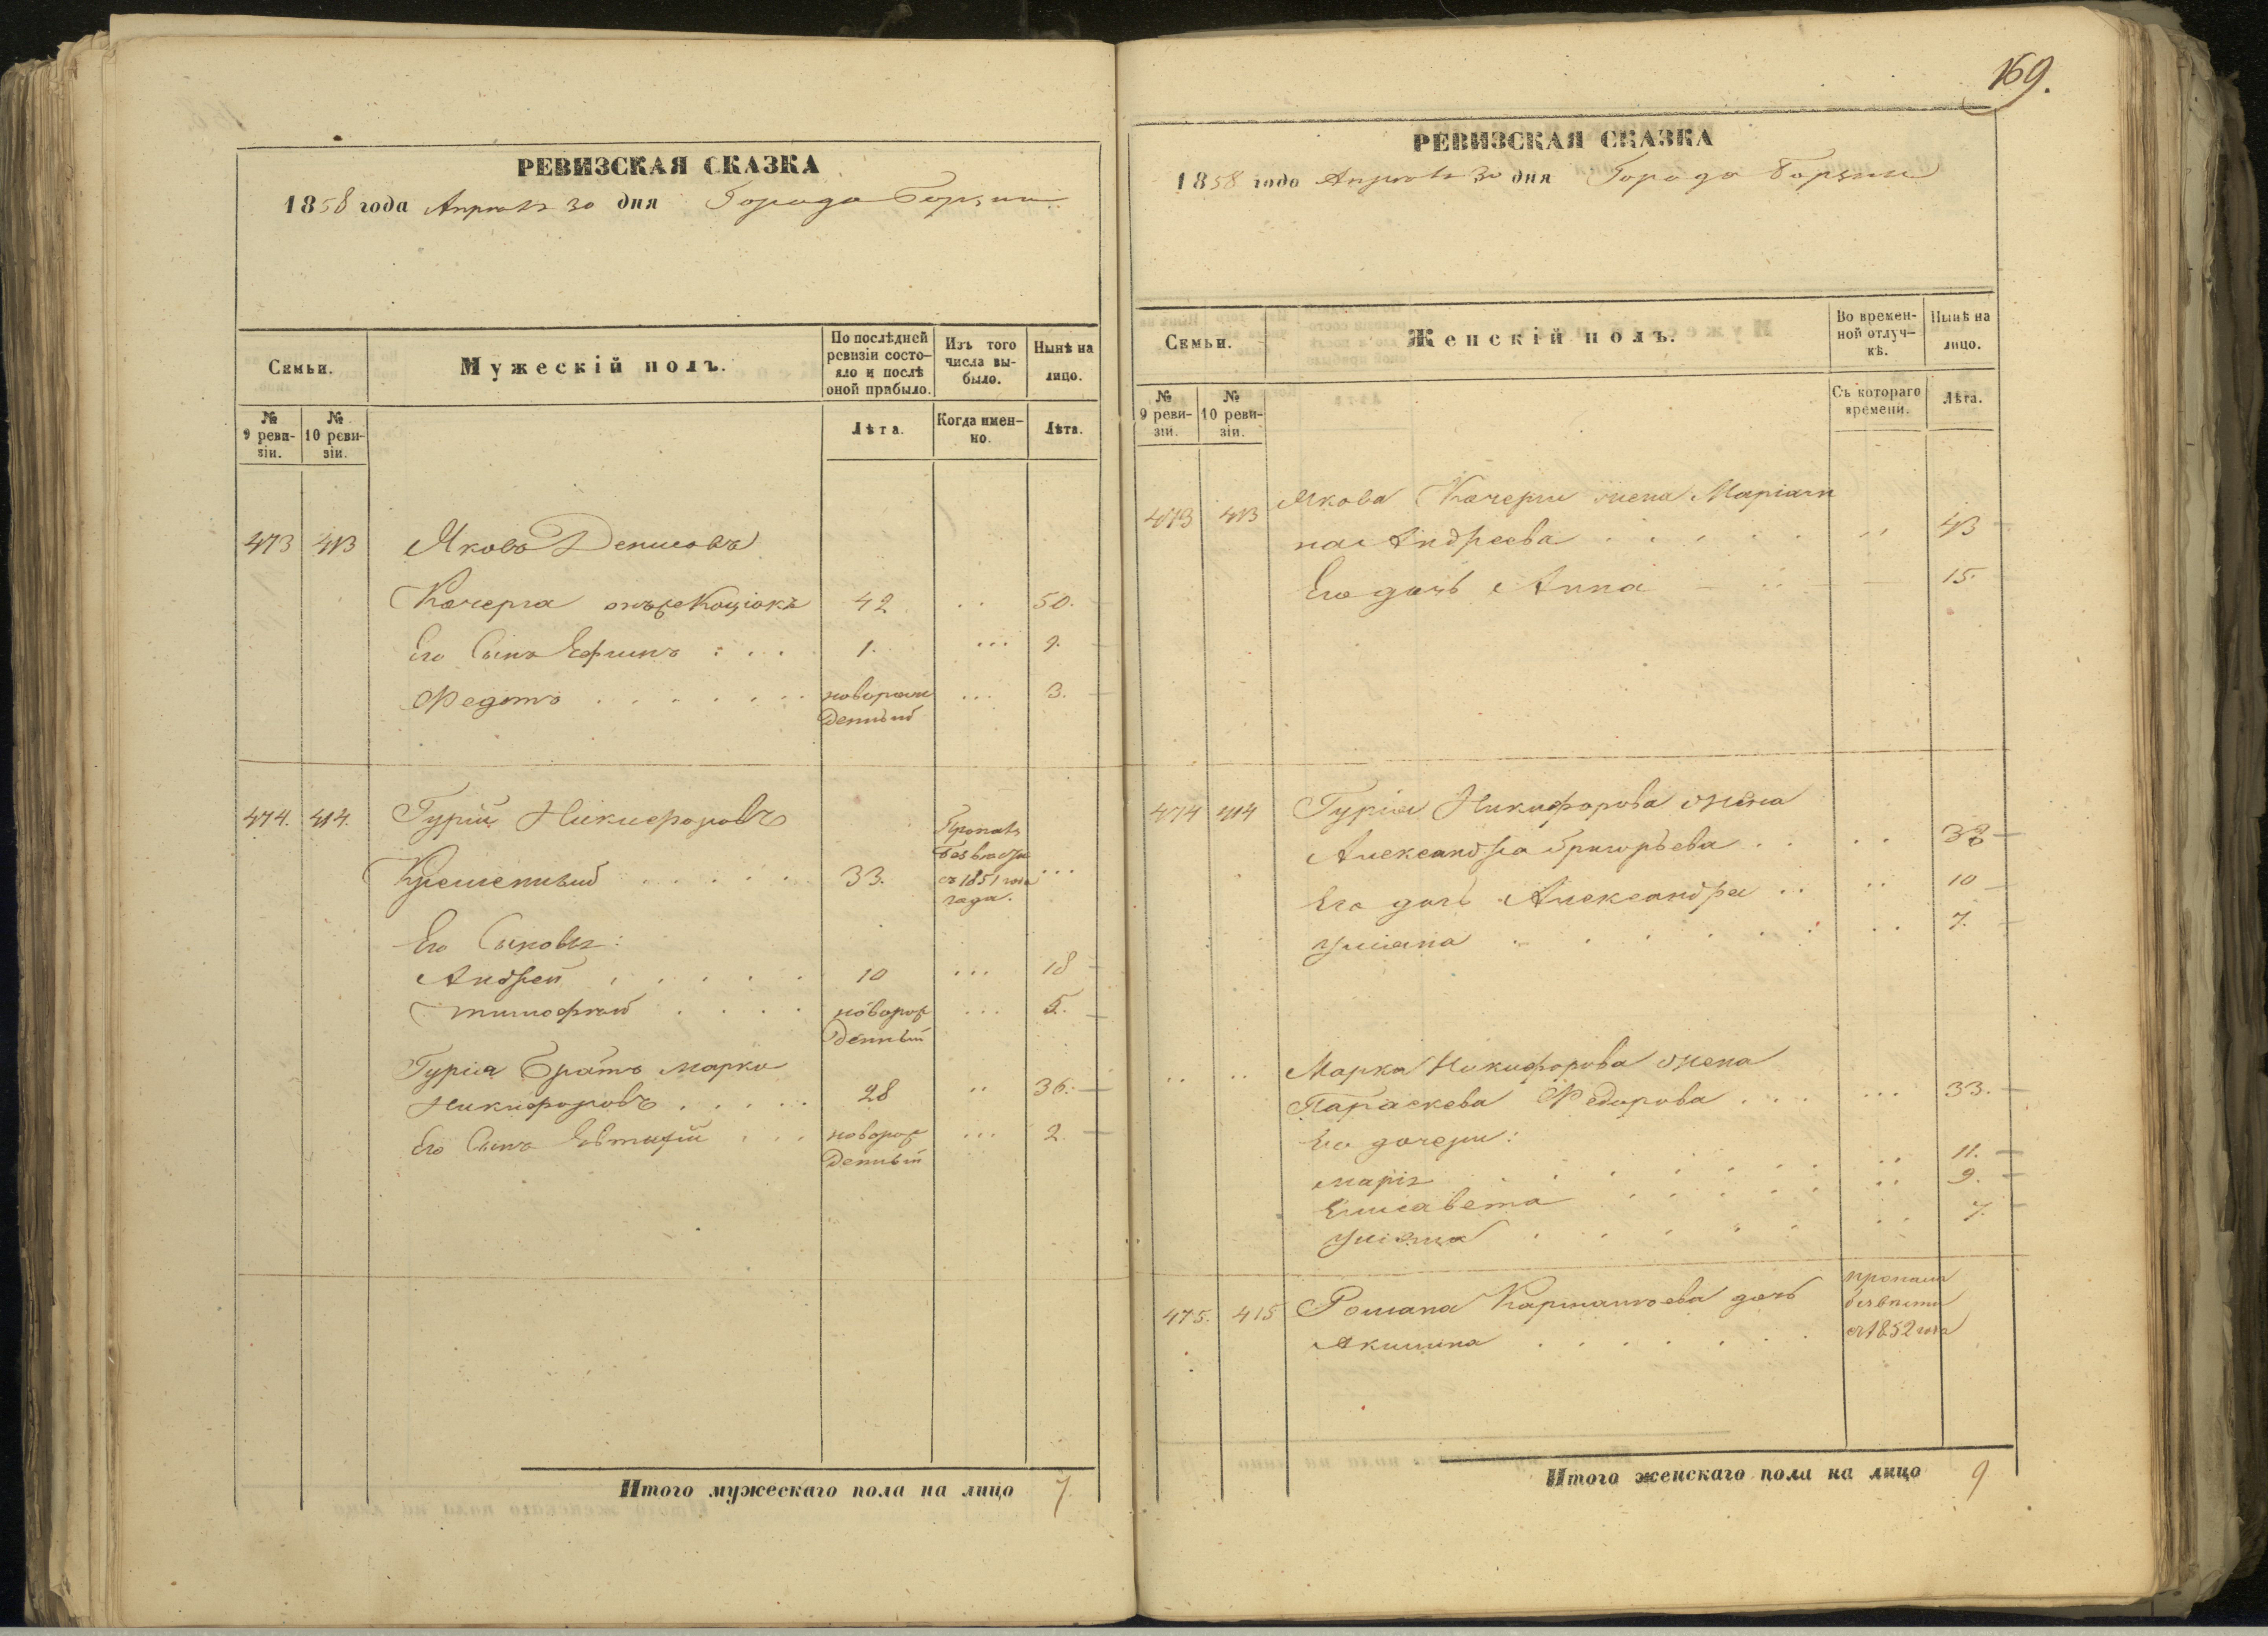 РЕВИЗСКАЯ СКАЗКА
1858 года Апреля 30 дня Города Борзны
Семьи.
Мужескій полъ.
По послѣдней ревизіи состояло и послѣ оной прибыло.
Изъ того числа выбыло.
Нынѣ на лицо.
№ 9 ревизіи.
№ 10 ревизіи.
Лѣта.
Когда именно.
Лѣта.
473 413 Яковъ Денисовъ
Кочерга онъже Коцюкъ 42 .. 50.
Его Сынъ Ефимъ 1. ... 9.
Федотъ новорожденный ... 3.
474. 414. Гурій Никифоровъ
Кремененный 33. Пропалъ безвести съ 1851 года ...
Его Сыновья:
Андрей 10 ... 18
Тимофей новорожденный ... 5.
Гурія Братъ Марко
Никифоровъ 28 .. 36.
Его Сынъ Евтихій новорожденный ... 2.
Итого мужескаго пола на лицо 7
169.
РЕВИЗСКАЯ СКАЗКА
1858 года Апреля 30 дня Города Борзны
Семьи.
Женскій полъ.
Во временной отлучкѣ.
Нынѣ на лицо.
№ 9 ревизіи.
№ 10 ревизіи.
Съ котораго времени.
Лѣта.
473 413 Якова Кочерги жена Маріан
на Андреева .. 43
Его дочь Анна 15.
474 414 Гурія Никифорова жена
Александра Григорьева .. 38
Его дочь Александра .. 10
Уліана .. 7.
.. .. Марка Никифорова жена
Параскева Федорова ... 33.
Его дочери:
Марія .. 11.
Елисавета .. 9.
Уліана .. 7.
475. 415 Романа дочь пропала безвести
Акилина съ 1852 года
Итого женскаго пола на лицо 9